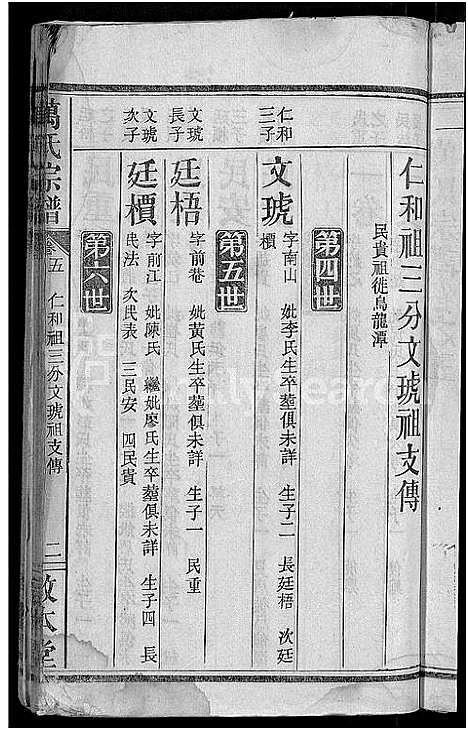 仁和祖三分文琥祖支傳
民貴祖徙烏龍潭
第四世
仁和三子
文琥 字南山 妣李氏生卒塟俱未詳 生子二 長廷梧 次廷
檟
第五世
文琥長子
廷梧 字前巷 妣黃氏生卒塟俱未詳 生子一 民重
文琥次子
廷檟 字前江 妣陳氏 繼妣廖氏生卒塟俱未詳 生子四 長
民法 次民表 三民安 四民貴
第六世
萬氏宗譜 卷五 仁和祖三分文琥祖支傳 二 敦本堂